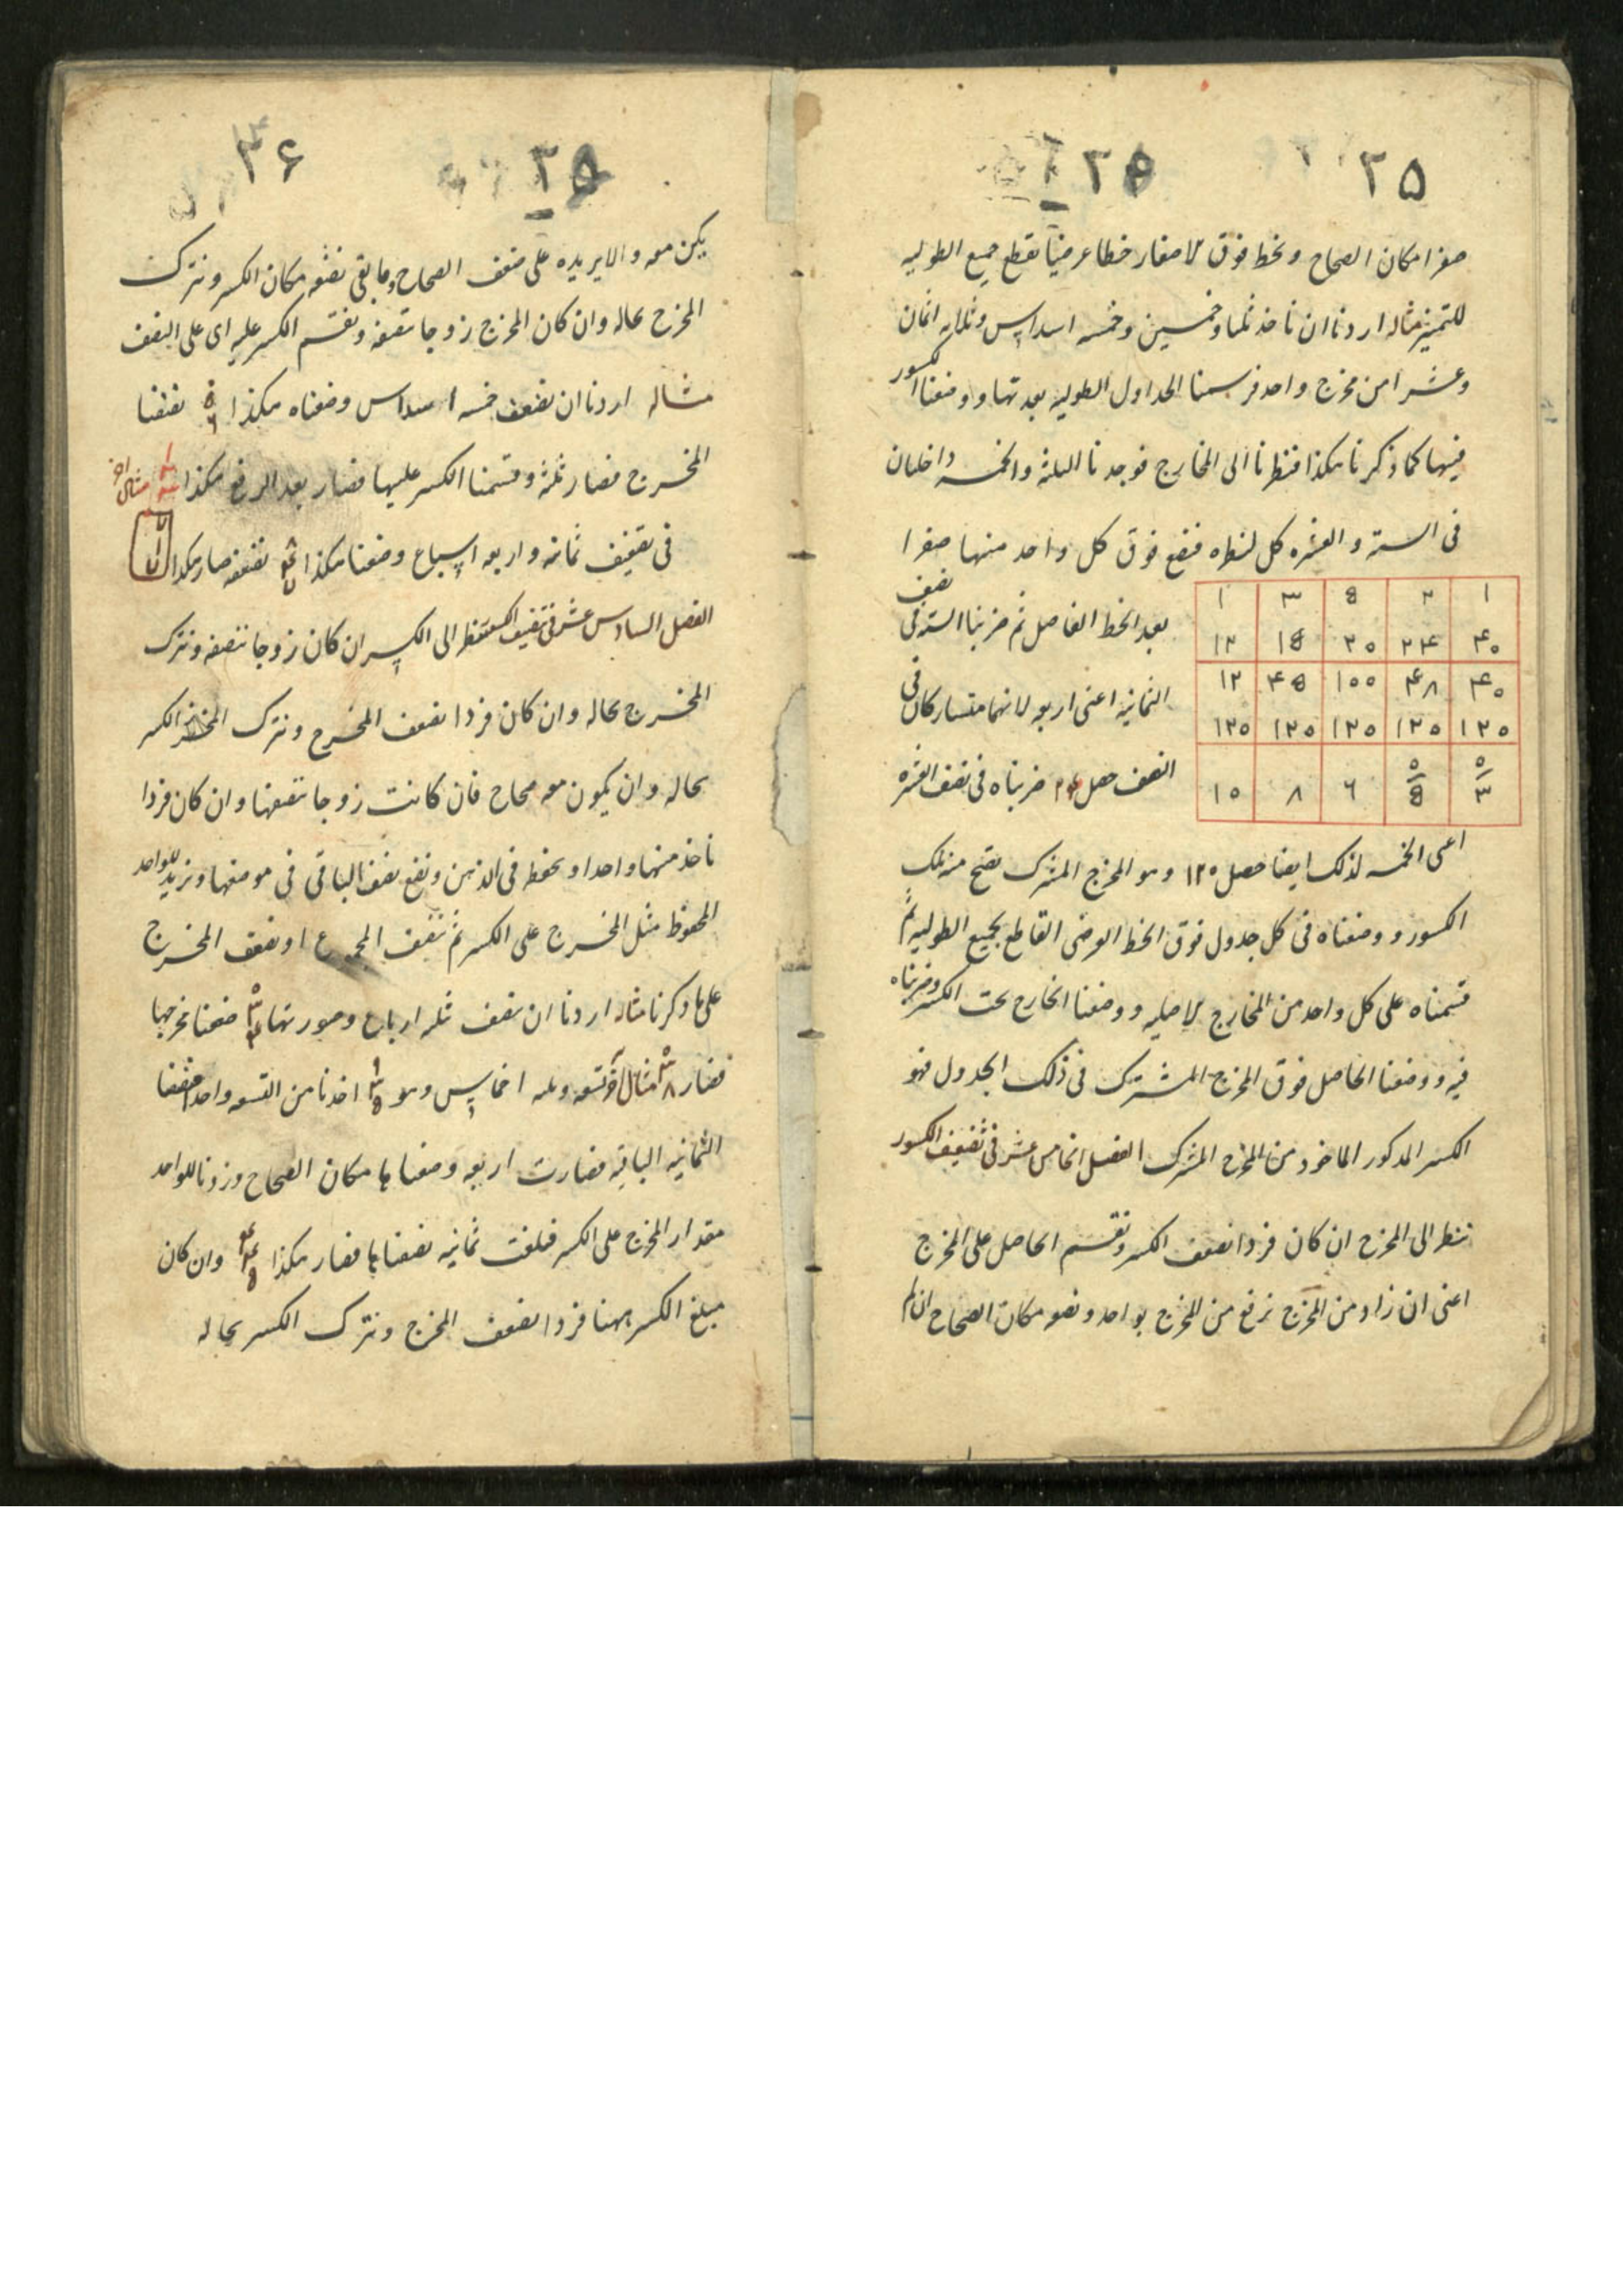 ۲۵
۲۵
صفرا مكان الصحاح ونخط فوق الاصفار خطا عرضيا يقطع جميع الطوليه
للتميز مثاله اردنا ان ناخذ ثلثا وخمسين وخمسه اسداس وثلثه اثمان
وعشرا من مخرج واحد فرسمنا الجداول الطوليه بعدتها ووضعنا الكسور
فيها كما ذكرنا هكذا فنظرنا الى المخارج فوجدنا الثلثه والخمسه داخلتان
فى السته والعشره كل لنظيره فنضع فوق كل واحد منها صفرا
بعد الخط الفاصل ثم ضربنا السته فى نصف
الثمانيه اعنى اربعه لانهما متشاركان فى
النصف حصل ۲۴ ضربناه فى نصف العشره
۱ ۲ 8 ۳ ۱
۴۰ ۲۴ ۲۰ ۱8 ۱۲
۴۰ ۴۸ ۱۰۰ ۴8 ۱۲
۱۲۰ ۱۲۰ ۱۲۰ ۱۲۰ ۱۲۰
۰ ۰
۳ 8 ۶ ۸ ۱۰
اعنى الخمسه لذلك ايضا حصل ۱۲۰ وهو المخرج المشترك يصح منه تلك
الكسور ووضعناه فى كل جدول فوق الخط العرضى القاطع لجميع الطوليه ثم
قسمناه على كل واحد من المخارج الاصليه ووضعنا الخارج تحت الكسر وضربناه
فيه ووضعنا الحاصل فوق المخرج المشترك فى ذلك الجدول فهو
الكسر المذكور الماخوذ من المخرج المشترك الفصل الخامس عشر فى تضعيف الكسور
ننظر الى المخرج ان كان فردا نضعف الكسر ونقسم الحاصل على المخرج
اعنى ان زاد من المخرج نرفع من المخرج بواحد ونضعه مكان الصحاح ان لم
۳۶
۲۵
يكن معه والا يزيده على ضعف الصحاح وما بقى نضعه مكان الكسر ونترك
المخرج بحاله وان كان المخرج زوجا ننصفه ونقسم الكسر عليه اى على النصف
مثاله اردنا ان نضعف خمسه اسداس وضعناه هكذا نصفنا
المخرج فصار ثلثه وقسمنا الكسر عليها فصار بعد الرفع هكذا مثال اخر
فى تضعيف ثمانيه واربعه اسباع وضعنا هكذا نضعفه صار هكذا
الفصل السادس عشر فى تنصيف الكسر ننظر الى الكسر ان كان زوجا ننصفه ونترك
المخرج بحاله وان كان فردا نضعف المخرج ونترك الكسر
بحاله وان يكون معه صحاح فان كانت زوجا ننصفها وان كان فردا
ناخذ منها واحدا ونحفظه فى الذهن ونضع نصف الباقى فى موضعها ونزيد للواحد
المحفوظ مثل المخرج على الكسر ثم ننصف المجموع او نضعف المخرج
على ما ذكرنا مثاله اردنا ان ننصف ثلثه ارباع وصورتها ضعفنا مخرجها
فصار مثال اخر تسعه وثلثه اخماس وهو اخذنا من التسعه واحدا فنصفنا
الثمانيه الباقيه فصارت اربعه وضعناها مكان الصحاح وزدنا للواحد
مقدار المخرج على الكسر فبلغت ثمانيه نصفناها فصار هكذا وان كان
مبلغ الكسر ههنا فردا نضعف المخرج ونترك الكسر بحاله